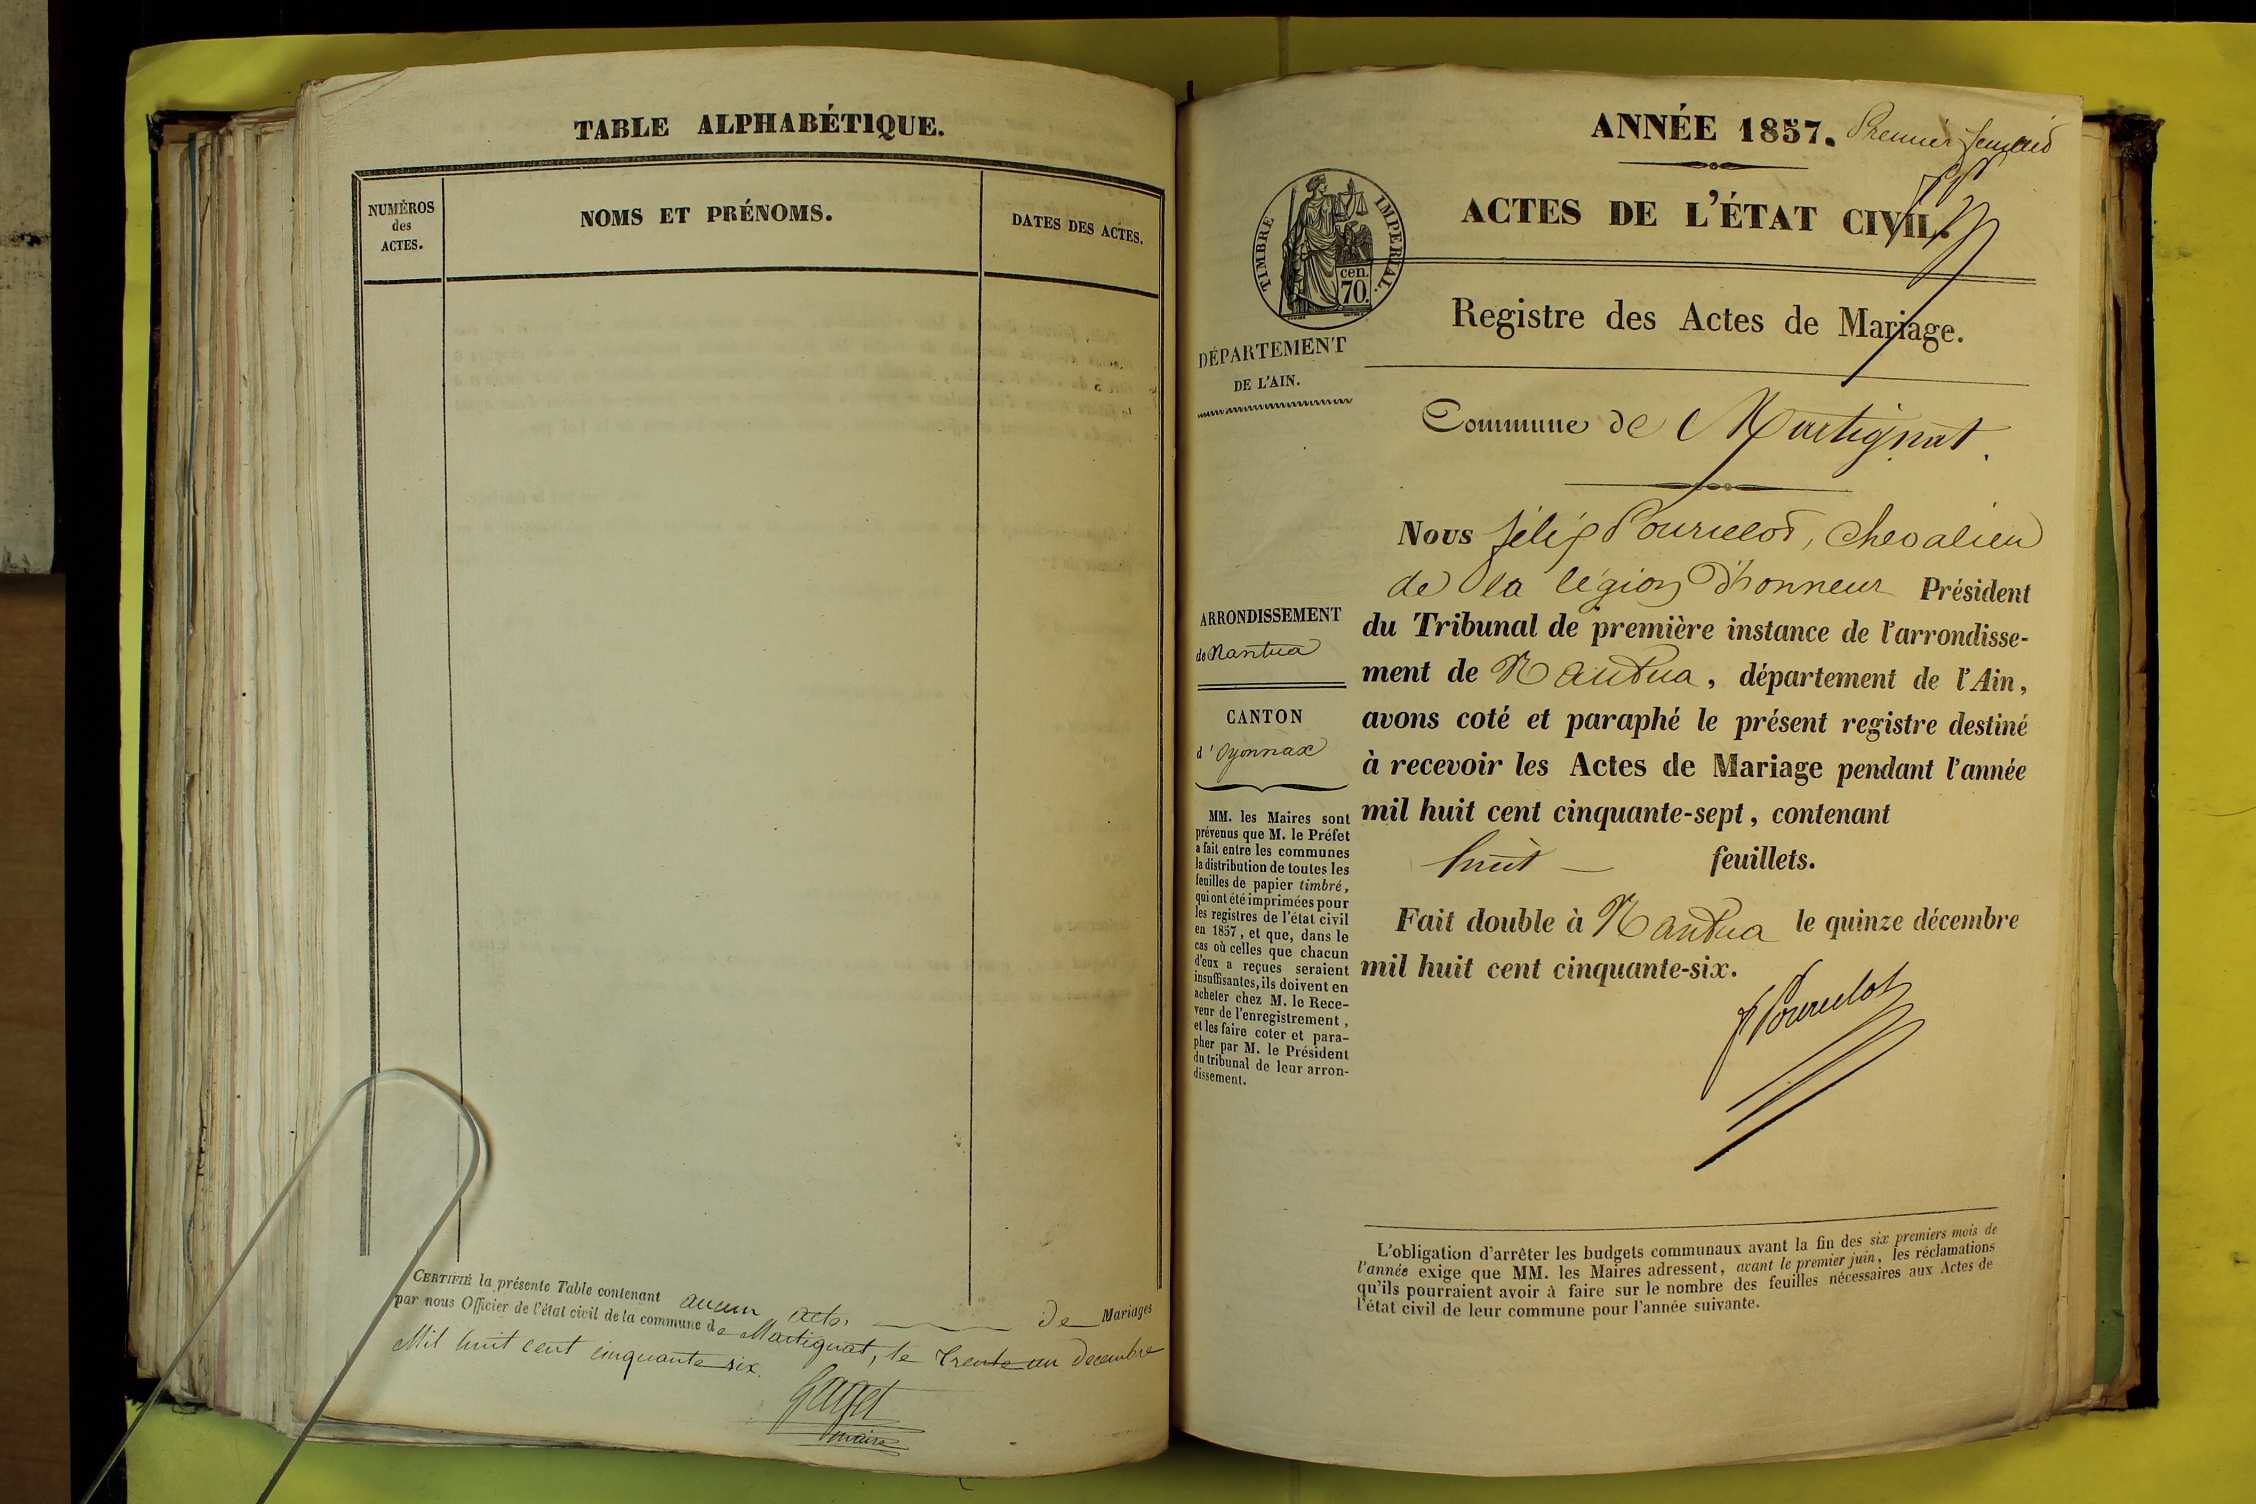 TABLE ALPHABÉTIQUE.
NUMÉROS
des
ACTES.
NOMS ET PRÉNOMS.
DATES DES ACTES.
CERTIFIÉ la présente Table contenant aucun acte, de Mariages
par nous Officier de l'état civil de la commune de Martignat, le trente un decembre
Mil huit cent cinquante six.
Gaget
maire
ANNÉE 1857. Premier feuillet
ACTES DE L'ÉTAT CIVIL.
TIMBRE IMPERIAL.
cen.
70.
Registre des Actes de Mariage.
DÉPARTEMENT
DE L'AIN.
Commune de Martignat.
Nous félix Pourcelot, chevalier
de la légion d'honneur Président
du Tribunal de première instance de l'arrondisse-
ment de Nantua, département de l'Ain,
avons coté et paraphé le présent registre destiné
à recevoir les Actes de Mariage pendant l'année
mil huit cent cinquante-sept, contenant
huit — feuillets.
Fait double à Nantua le quinze décembre
mil huit cent cinquante-six.
F Pourcelot
ARRONDISSEMENT
de Nantua
CANTON
d'Oyonnax
MM. les Maires sont
prévenus que M. le Préfet
a fait entre les communes
la distribution de toutes les
feuilles de papier timbré,
qui ont été imprimées pour
les registres de l'état civil
en 1857, et que, dans le
cas où celles que chacun
d'eux a reçues seraient
insuffisantes, ils doivent en
acheter chez M. le Rece-
veur de l'enregistrement,
et les faire coter et para-
pher par M. le Président
du tribunal de leur arron-
dissement.
L'obligation d'arrêter les budgets communaux avant la fin des six premiers mois de
l'année exige que MM. les Maires adressent, avant le premier juin, les réclamations
qu'ils pourraient avoir à faire sur le nombre des feuilles nécessaires aux Actes de
l'état civil de leur commune pour l'année suivante.